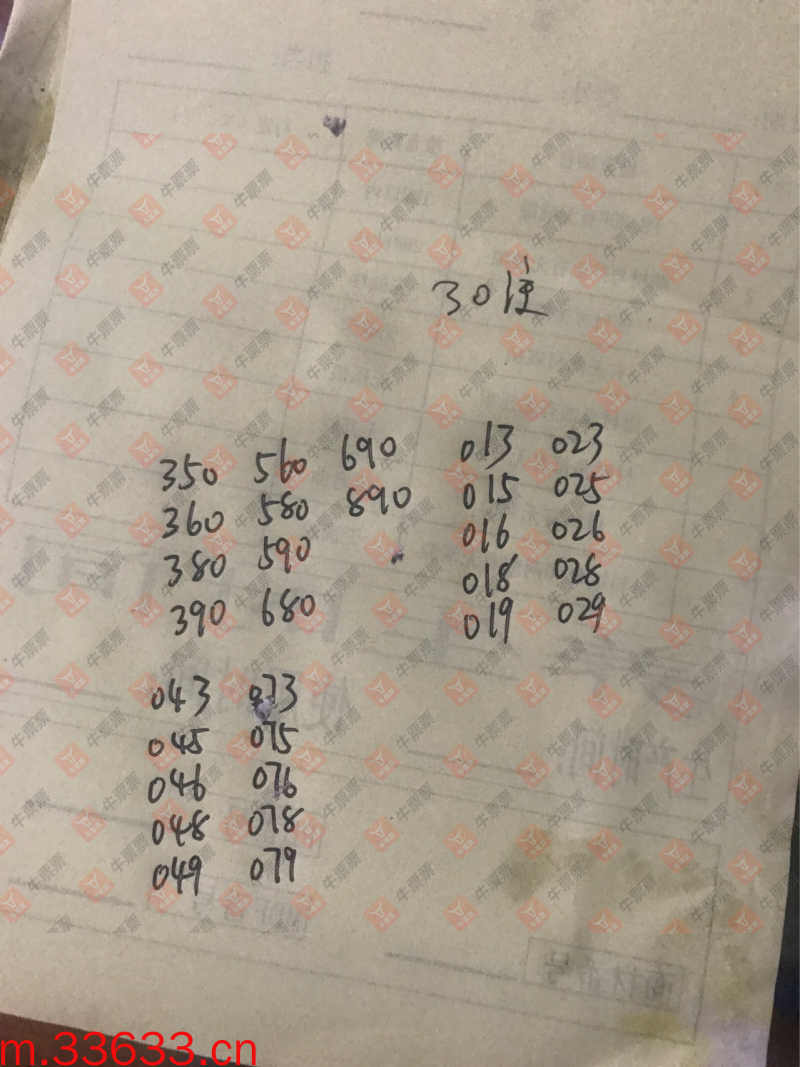 30注
350 560 690
360 580 890
380 590
390 680
013 023
015 025
016 026
018 028
019 029
043 073
045 075
046 076
048 078
049 079
牛票票
m.33633.cn